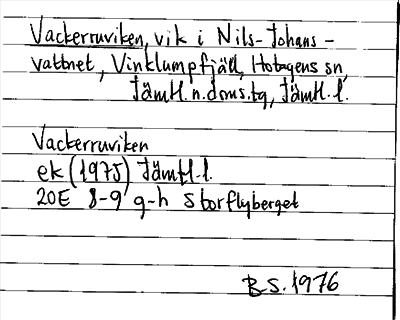 Vackerruviken, vik i Nils-Johans-
vattnet, Vinklumpfjäll, Hotagens sn,
Jämtl. n. doms.tg, Jämtl. l.
Vackerruviken
ek (1975) Jämtl. l.
20E 8-9 g-h Storflyberget
B.S. 1976